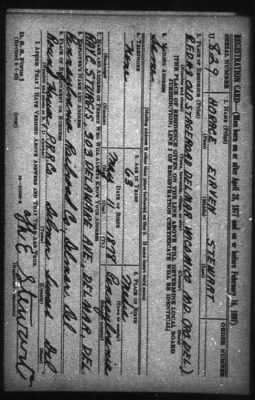 REGISTRATION CARD—(Men born on or after April 28, 1877 and on or before February 16, 1897)
SERIAL NUMBER 1. NAME (Print) ORDER NUMBER
U 829 HORACE EIRVEN STEWART
(First) (Middle) (Last)
2. PLACE OF RESIDENCE (Print)
RED#2 OLD STAGE ROAD, DELMAR WICOMICO MD. (P.O. DEL.)
[THE PLACE OF RESIDENCE GIVEN ON THE LINE ABOVE WILL DETERMINE LOCAL BOARD
JURISDICTION; LINE 2 OF REGISTRATION CERTIFICATE WILL BE IDENTICAL]
3. MAILING ADDRESS
Same
[Mailing address if other than place indicated on line 2. If same insert word same]
4. TELEPHONE 5. AGE IN YEARS 6. PLACE OF BIRTH
None 63
DATE OF BIRTH
May 1878 Pennsylvania
7. NAME AND ADDRESS OF PERSON WHO WILL ALWAYS KNOW YOUR ADDRESS
RAY C. STURGIS 303 DELAWARE AVE. DELMAR, DEL
8. EMPLOYER'S NAME AND ADDRESS
Pennsylvania Railroad Co. Delmar, Del
9. PLACE OF EMPLOYMENT OR BUSINESS
Round House P.R.R. Co. Delmar Sussex Del
I AFFIRM THAT I HAVE VERIFIED ABOVE ANSWERS AND THAT THEY ARE TRUE.
D. S. S. Form 1
H. E. Stewart